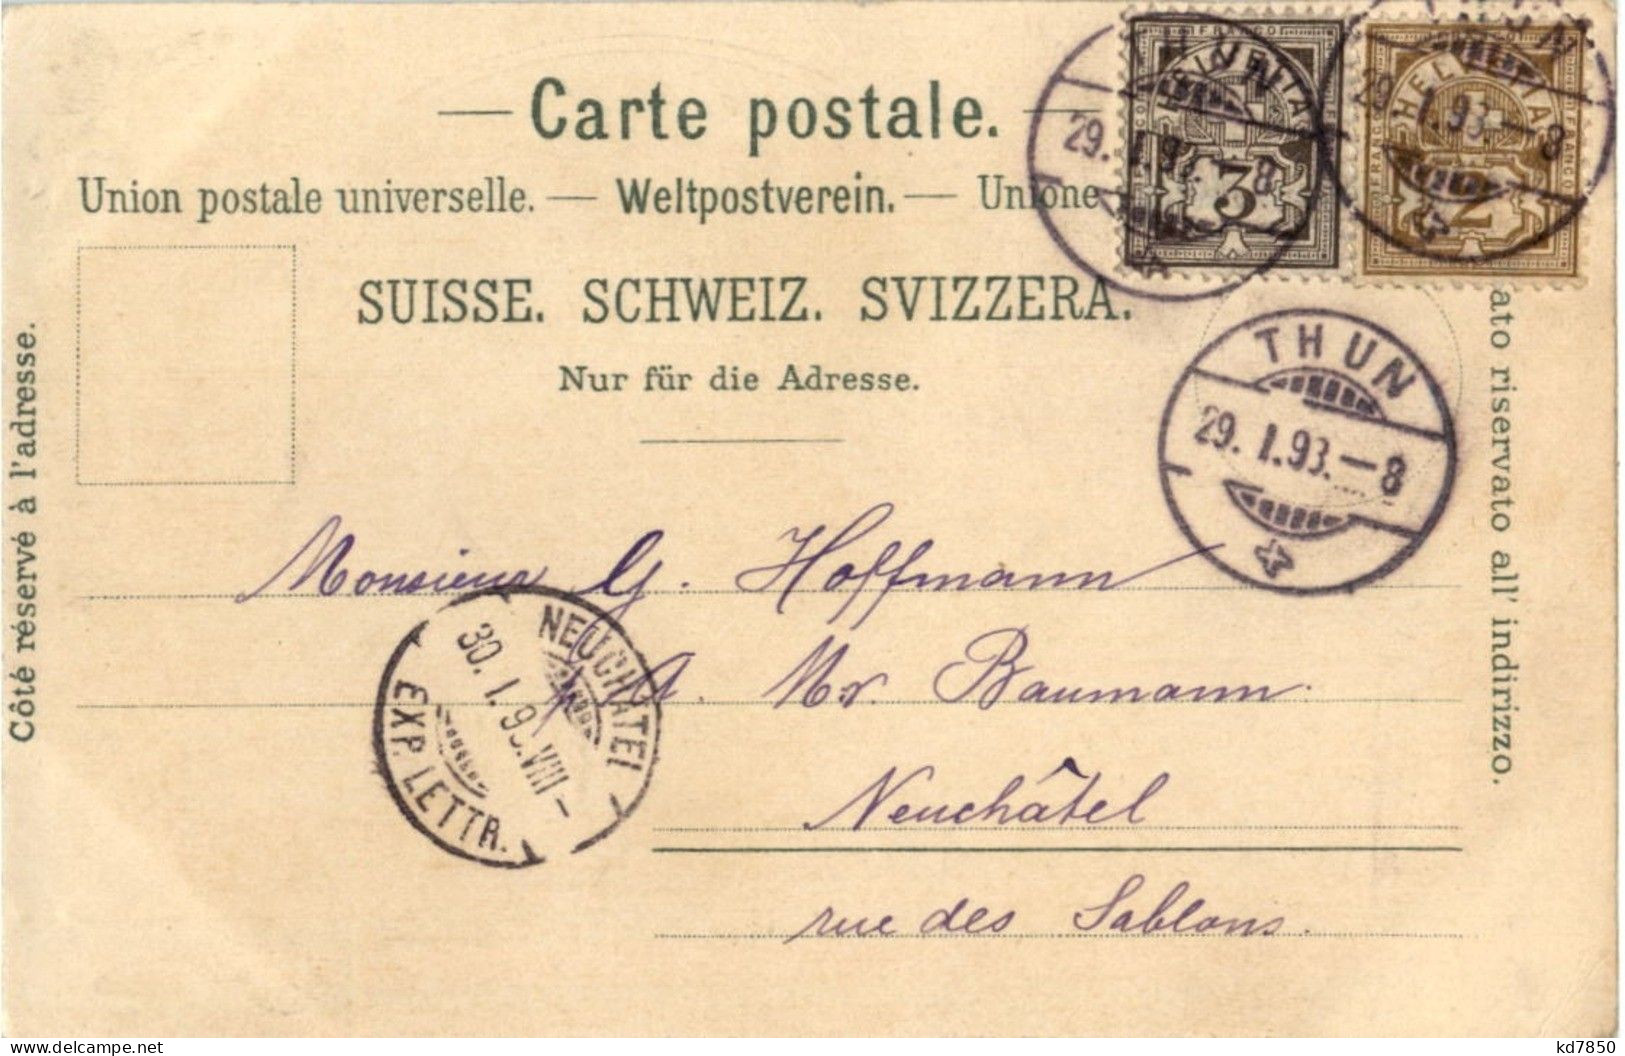 FRANCO
HELVETIA
3
HELVETIA
FRANCO
2
THUN
29. I. 93. – 8
29. I. 93. – 8
— Carte postale. —
Union postale universelle. — Weltpostverein. — Unione
SUISSE. SCHWEIZ. SVIZZERA.
Nur für die Adresse.
Côté réservé à l'adresse.
ato riservato all' indirizzo.
THUN
29. I. 93. – 8
Monsieur G. Hoffmann
A. Mr Baumann.
Neuchâtel
rue des Sablons.
NEUCHATEL
30. I. 93. VIII –
EXP. LETTR.
kd7850